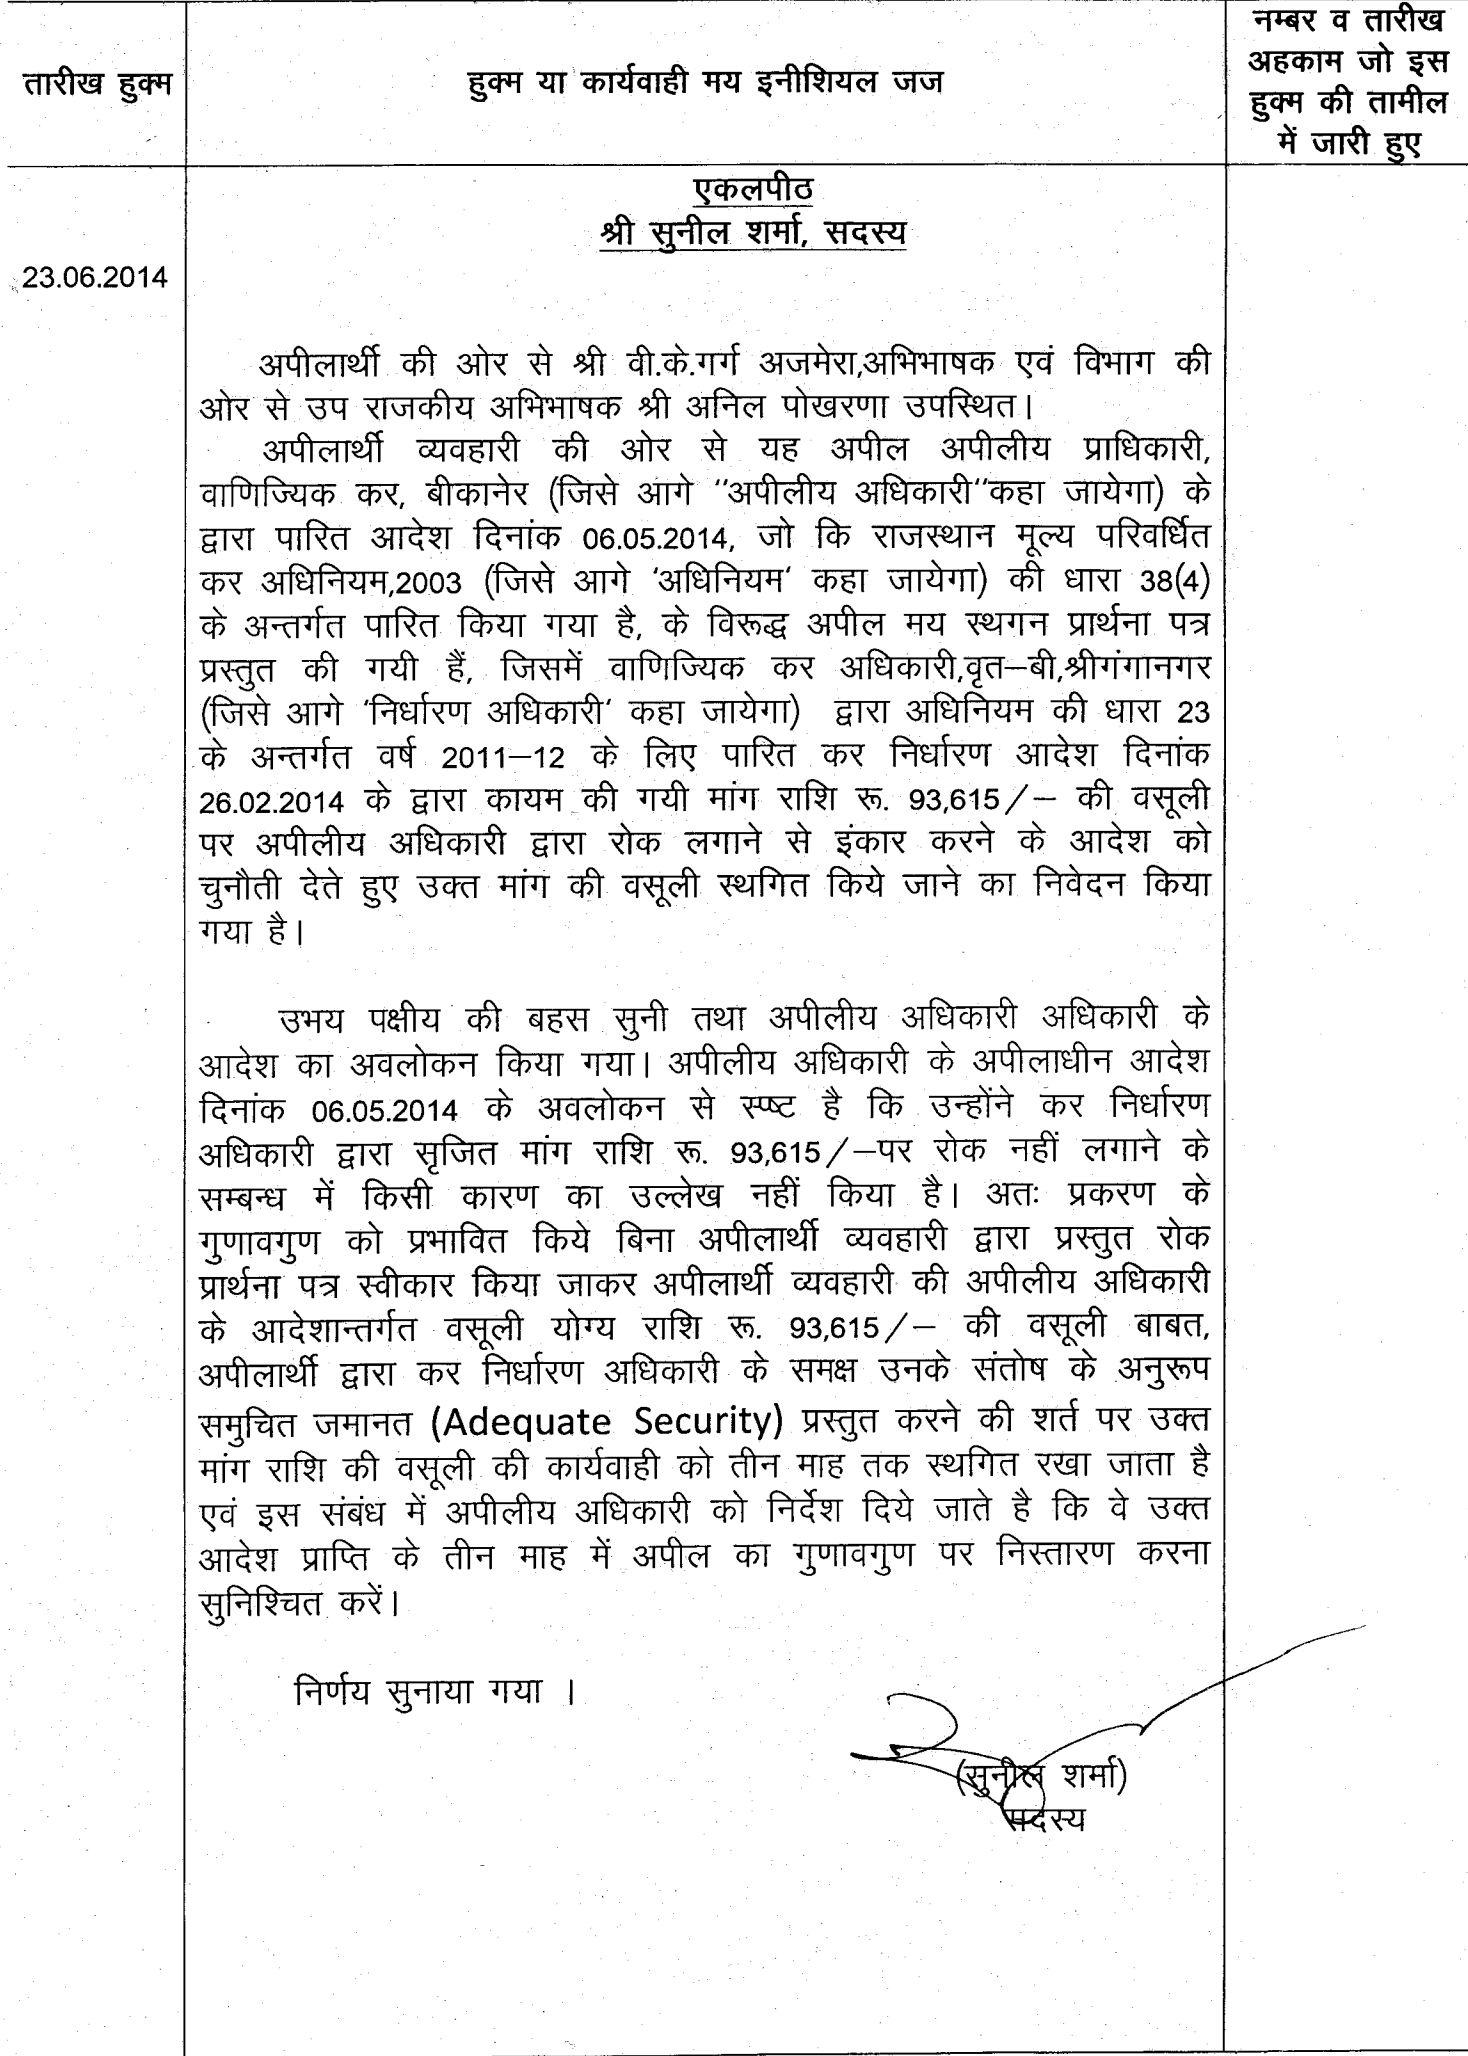 तारीख हुक्म
हुक्म या कार्यवाही मय इनीशियल जज
नम्बर व तारीख
अहकाम जो इस
हुक्म की तामील
में जारी हुए
एकलपीठ
श्री सुनील शर्मा, सदस्य
23.06.2014
अपीलार्थी की ओर से श्री वी.के.गर्ग अजमेरा,अभिभाषक एवं विभाग की
ओर से उप राजकीय अभिभाषक श्री अनिल पोखरणा उपस्थित।
अपीलार्थी व्यवहारी की ओर से यह अपील अपीलीय प्राधिकारी,
वाणिज्यिक कर, बीकानेर (जिसे आगे ''अपीलीय अधिकारी''कहा जायेगा) के
द्वारा पारित आदेश दिनांक 06.05.2014, जो कि राजस्थान मूल्य परिवर्धित
कर अधिनियम,2003 (जिसे आगे 'अधिनियम' कहा जायेगा) की धारा 38(4)
के अन्तर्गत पारित किया गया है, के विरूद्ध अपील मय स्थगन प्रार्थना पत्र
प्रस्तुत की गयी हैं, जिसमें वाणिज्यिक कर अधिकारी,वृत–बी,श्रीगंगानगर
(जिसे आगे 'निर्धारण अधिकारी' कहा जायेगा) द्वारा अधिनियम की धारा 23
के अन्तर्गत वर्ष 2011–12 के लिए पारित कर निर्धारण आदेश दिनांक
26.02.2014 के द्वारा कायम की गयी मांग राशि रू. 93,615/– की वसूली
पर अपीलीय अधिकारी द्वारा रोक लगाने से इंकार करने के आदेश को
चुनौती देते हुए उक्त मांग की वसूली स्थगित किये जाने का निवेदन किया
गया है।
उभय पक्षीय की बहस सुनी तथा अपीलीय अधिकारी अधिकारी के
आदेश का अवलोकन किया गया। अपीलीय अधिकारी के अपीलाधीन आदेश
दिनांक 06.05.2014 के अवलोकन से स्प्ष्ट है कि उन्होंने कर निर्धारण
अधिकारी द्वारा सृजित मांग राशि रू. 93,615/–पर रोक नहीं लगाने के
सम्बन्ध में किसी कारण का उल्लेख नहीं किया है। अतः प्रकरण के
गुणावगुण को प्रभावित किये बिना अपीलार्थी व्यवहारी द्वारा प्रस्तुत रोक
प्रार्थना पत्र स्वीकार किया जाकर अपीलार्थी व्यवहारी की अपीलीय अधिकारी
के आदेशान्तर्गत वसूली योग्य राशि रू. 93,615/– की वसूली बाबत,
अपीलार्थी द्वारा कर निर्धारण अधिकारी के समक्ष उनके संतोष के अनुरूप
समुचित जमानत (Adequate Security) प्रस्तुत करने की शर्त पर उक्त
मांग राशि की वसूली की कार्यवाही को तीन माह तक स्थगित रखा जाता है
एवं इस संबंध में अपीलीय अधिकारी को निर्देश दिये जाते है कि वे उक्त
आदेश प्राप्ति के तीन माह में अपील का गुणावगुण पर निस्तारण करना
सुनिश्चित करें।
निर्णय सुनाया गया ।
(सुनील शर्मा)
सदस्य